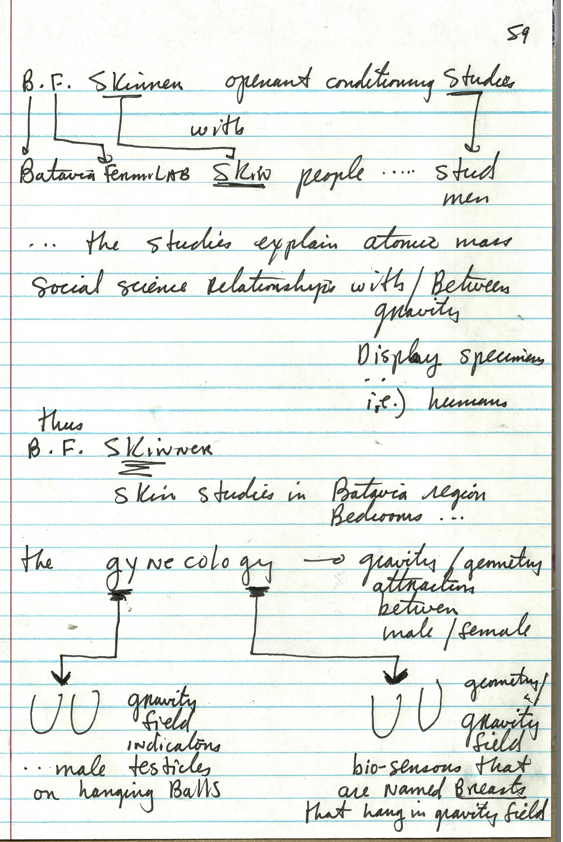 59
B. F. Skinner operant conditioning Studies
with
Batavia FermiLAB Skin people ..... stud
men
... the studies explain atomic mass
Social science Relationships with / Between
gravity
Display specimens
i.e.) humans
thus
B. F. SKINNER
Skin studies in Batavia region
Bedrooms ...
the gynecology → gravity / geometry
attraction
between
male / female
gravity
field
indicators
... male testicles
on hanging Balls
geometry/
gravity
field
bio-sensors that
are named Breasts
that hang in gravity field